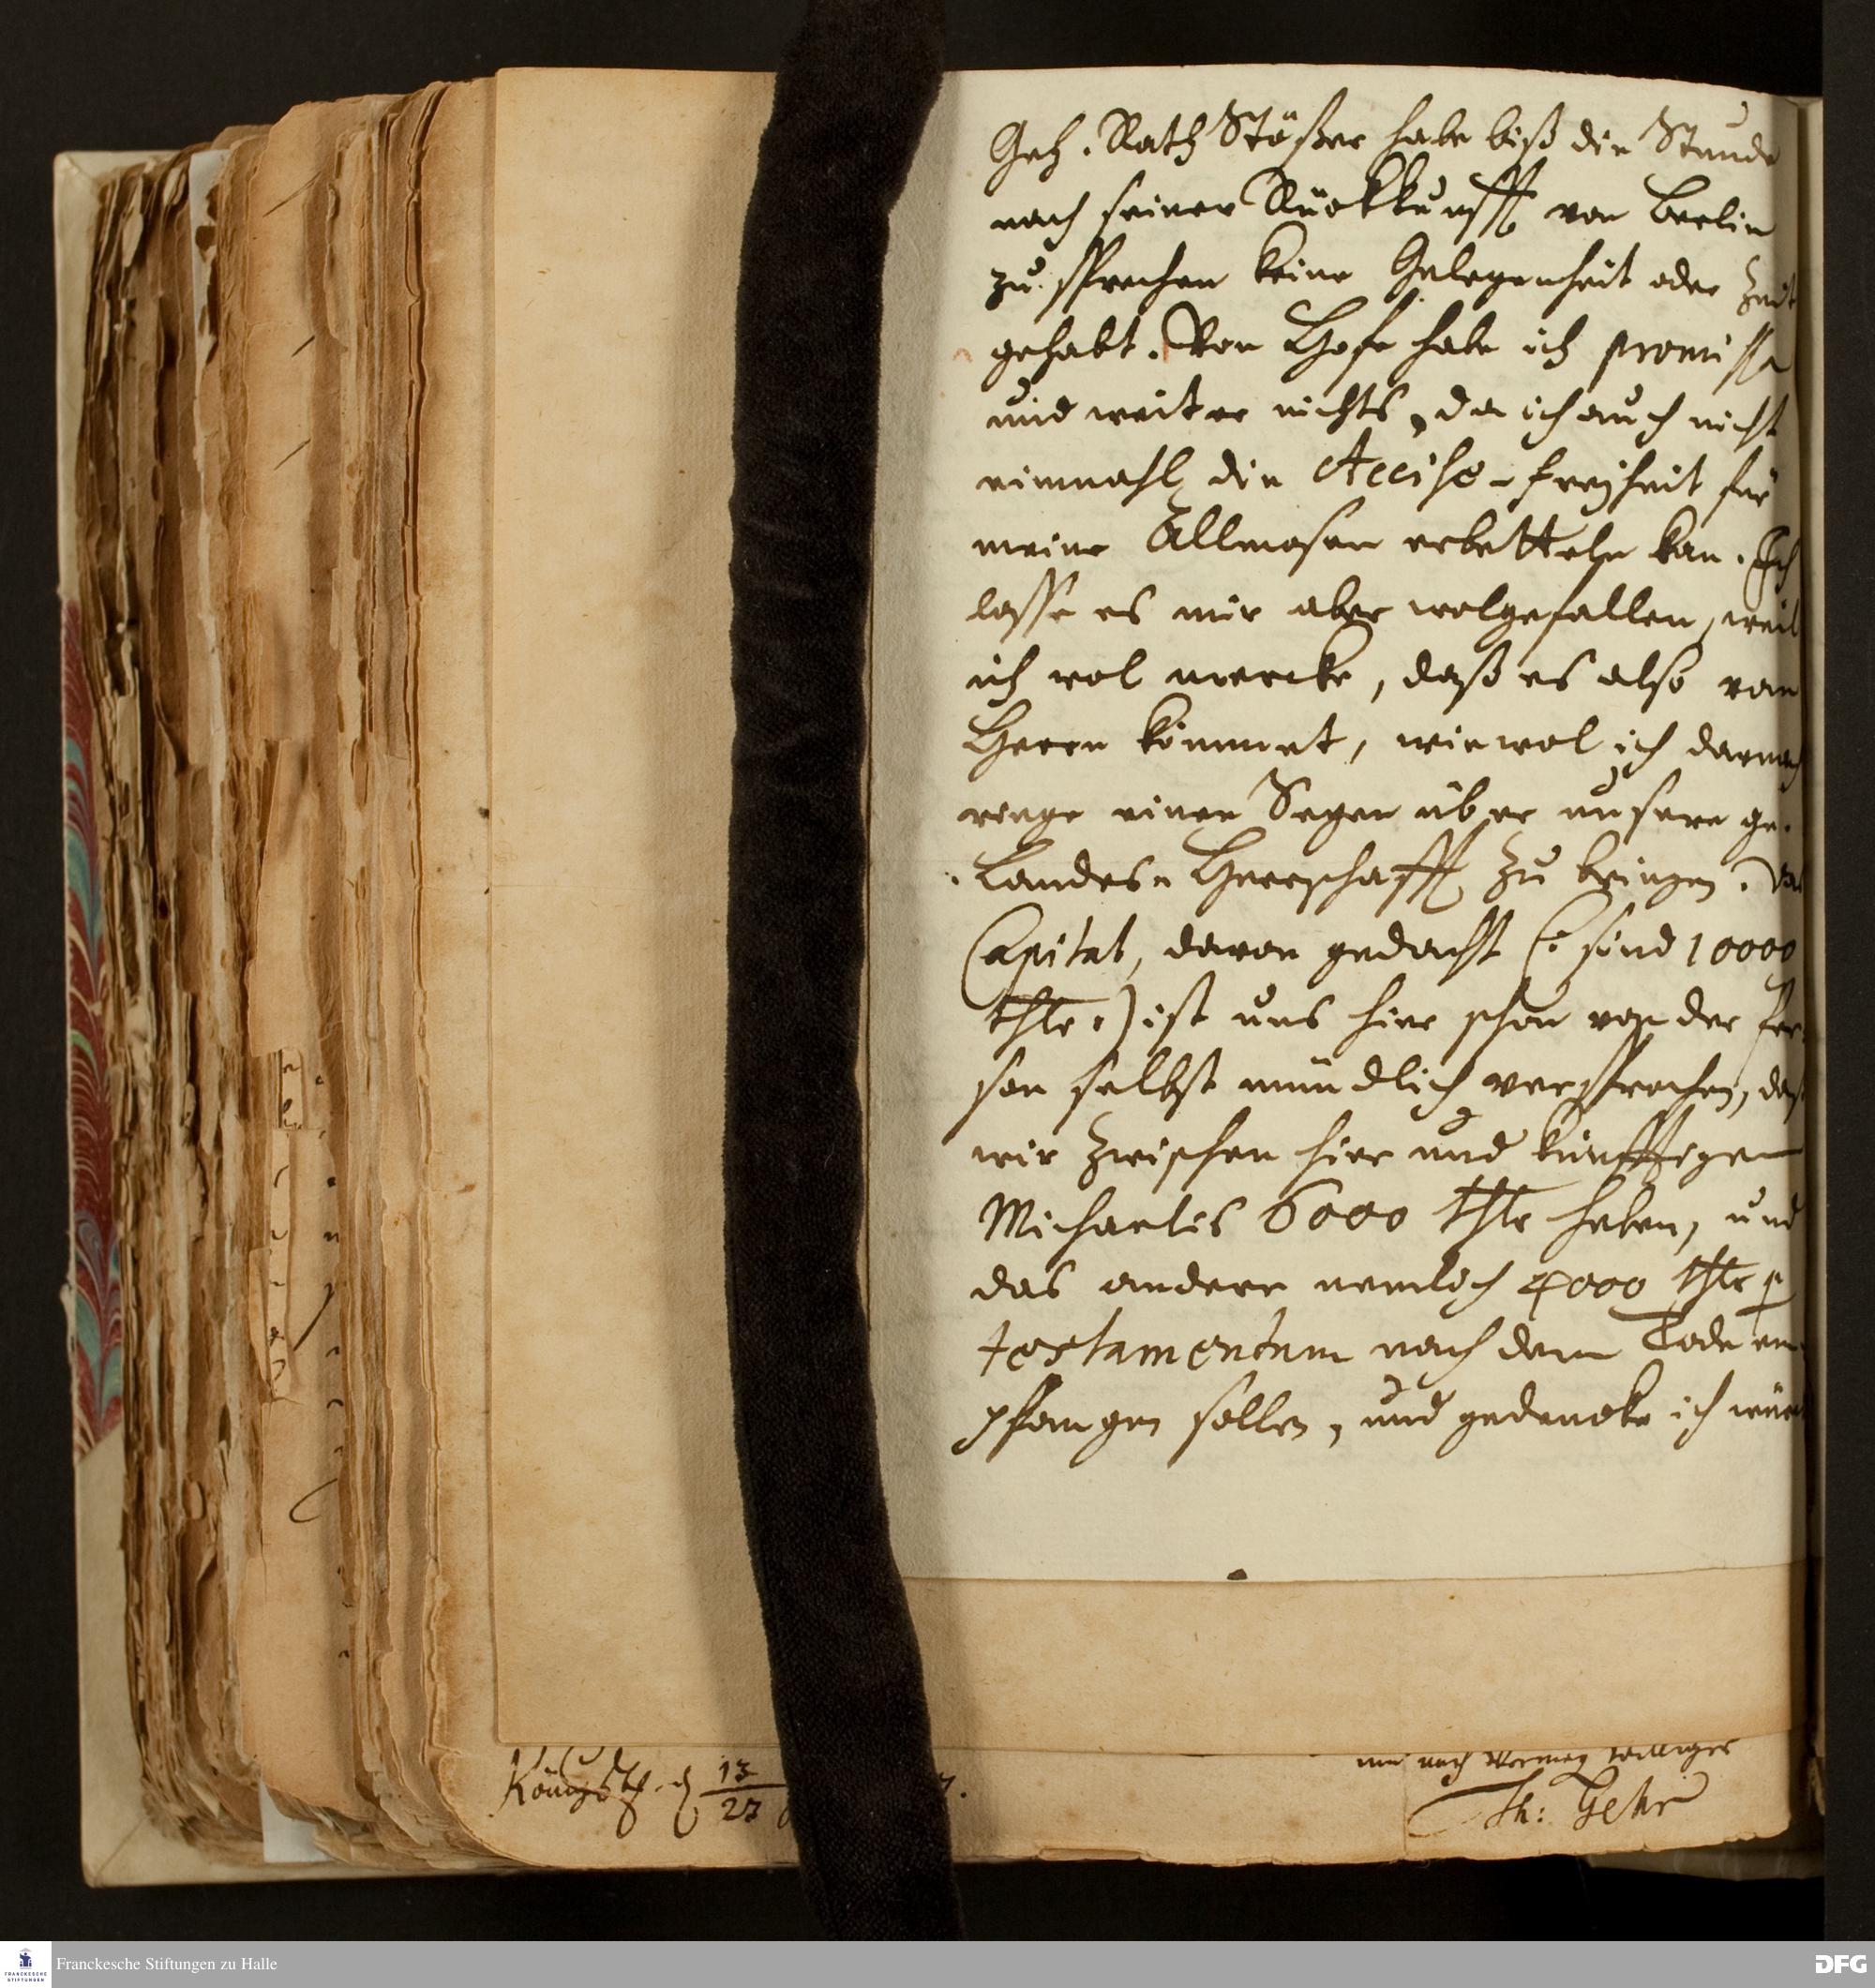 Geh. Rath Stößer habe biß die Stunde
nach seiner Rückkunfft von Berlin
zu sprechen keine Gelegenheit oder Zeit
gehabt. Von Hofe habe ich promissa
und weiter nichts, da ich auch nicht
einmahl die Accise-freyheit für
meine Allmosen erbetteln kan. Ich
lasse es mir aber wolgefallen, weil
ich wol mercke, daß es also vom
Herrn kömmet, wiewol ich darnach
ringe einen Segen über unsere ge.
Landes-Herrschafft zu bringen.
Capital, davon gedacht (: sind 10000
thlr.) ist uns hier schon von der Per-
son selbst mündlich versprochen, daß
wir zwischen hier und künfftigen
Michaelis 6000 thlr heben, und
das andere nemlich 4000 thlr
testamentum nach dem Tode em-
pfangen sollen, und gedencke ich
Königsb. d 13
27
7.
williger
Th: Gehr
Franckesche Stiftungen zu Halle
FRANCKESCHE
STIFTUNGEN
DFG